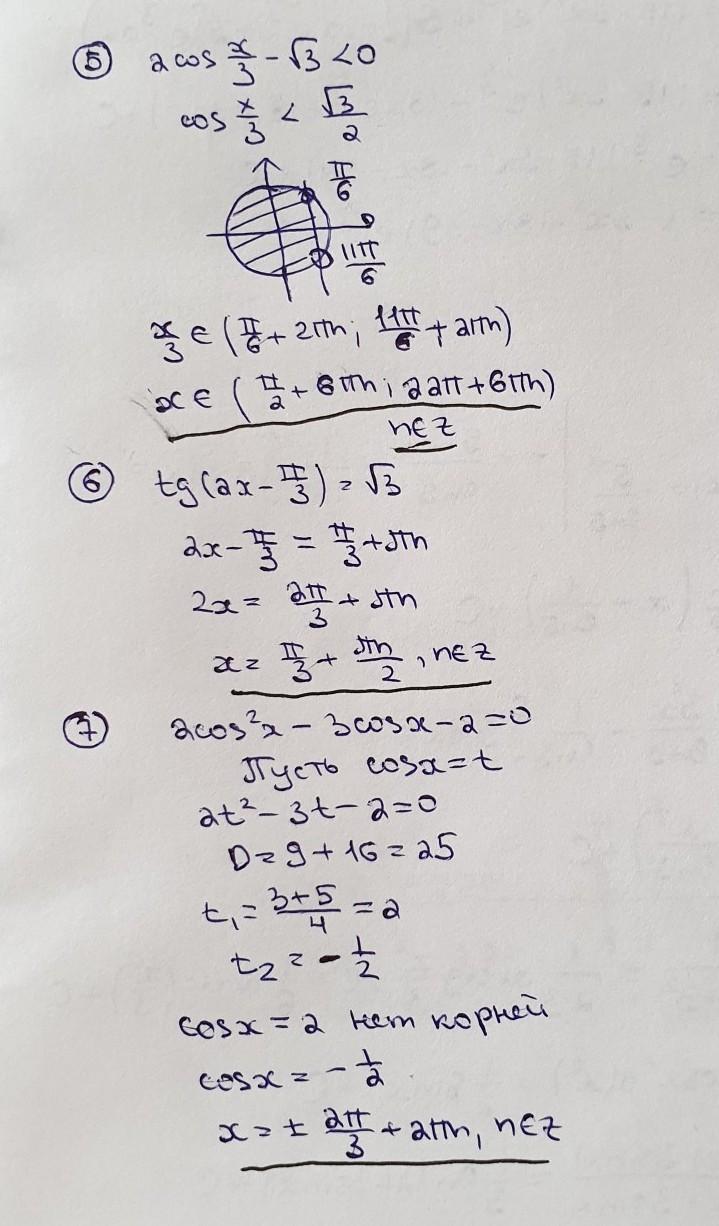 ⑤ 2cos x/3 - √3 < 0
cos x/3 < √3/2
π/6
0
11π/6
x/3 ∈ (π/6 + 2πn; 11π/6 + 2πn)
x ∈ (π/2 + 6πn; 22π + 6πn)
n∈Z
⑥ tg(2x - π/3) = √3
2x - π/3 = π/3 + πn
2x = 2π/3 + πn
x = π/3 + πn/2, n∈Z
⑦ 2cos²x - 3cosx - 2 = 0
Пусть cosx = t
2t² - 3t - 2 = 0
D = 9 + 16 = 25
t₁ = (3+5)/4 = 2
t₂ = -1/2
cosx = 2 нет корней
cosx = -1/2
x = ± 2π/3 + 2πn, n∈Z